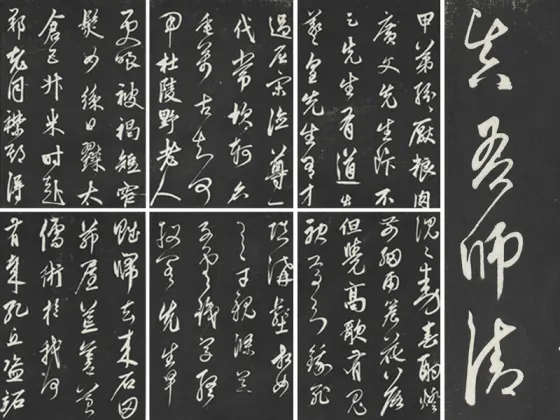 真吾師清
甲第紛紛厭粱肉
廣文先生飯不
足先生有道出
羲皇先生有才
過屈宋德尊一
代常坎軻名
垂萬古知何
用杜陵野老人
更嗤被褐短窄
鬢如絲日糴太
倉五升米時赴
鄭老同襟期得
沉沉動春酌燈
前細雨簷花落
但覺高歌有鬼
神焉知餓死
填溝壑相如
逸才親滌器
子雲識字終
投閣先生早
賦歸去來石田
茅屋荒蒼苔
儒術於我何
有哉孔丘盜跖